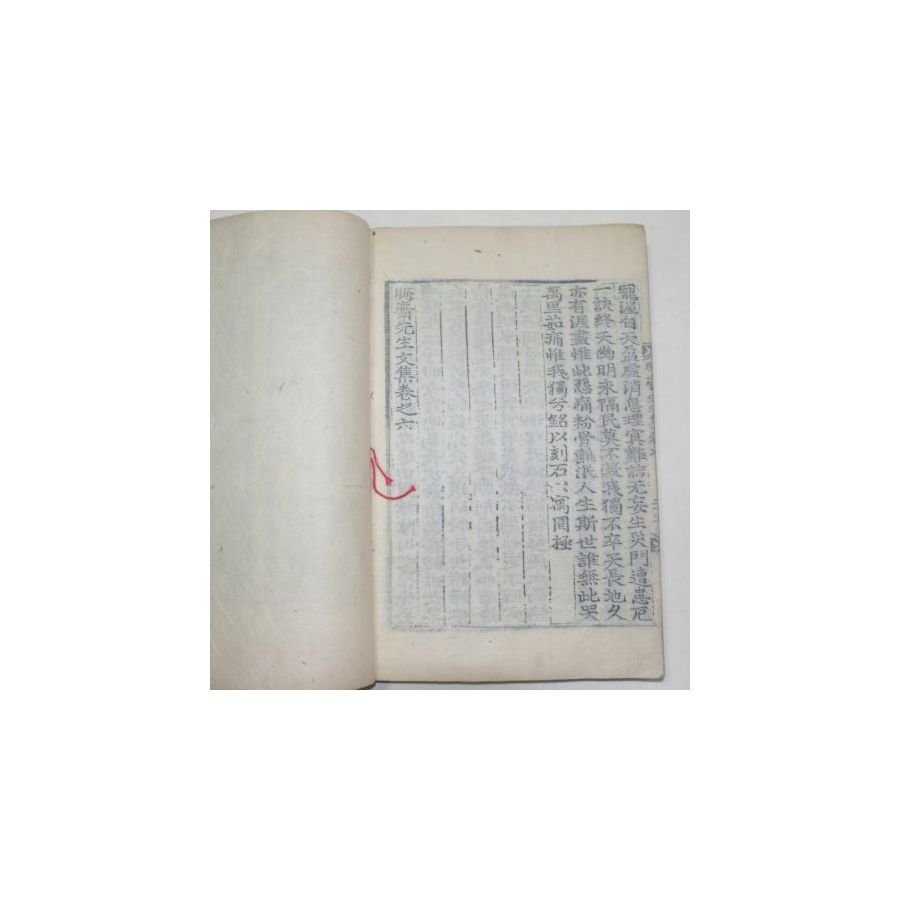 寵渥自天盈虛消息理宲難詰无妄生災門遭愚厄
一訣終天幽明永隔民莫不穀我獨不卒天長地久
亦有涯盡惟此悲痛粉骨難泯人生斯世誰無此哭
萬里茹痛惟我獨兮銘以刻石以寓罔極
晦齋先生文集卷之六